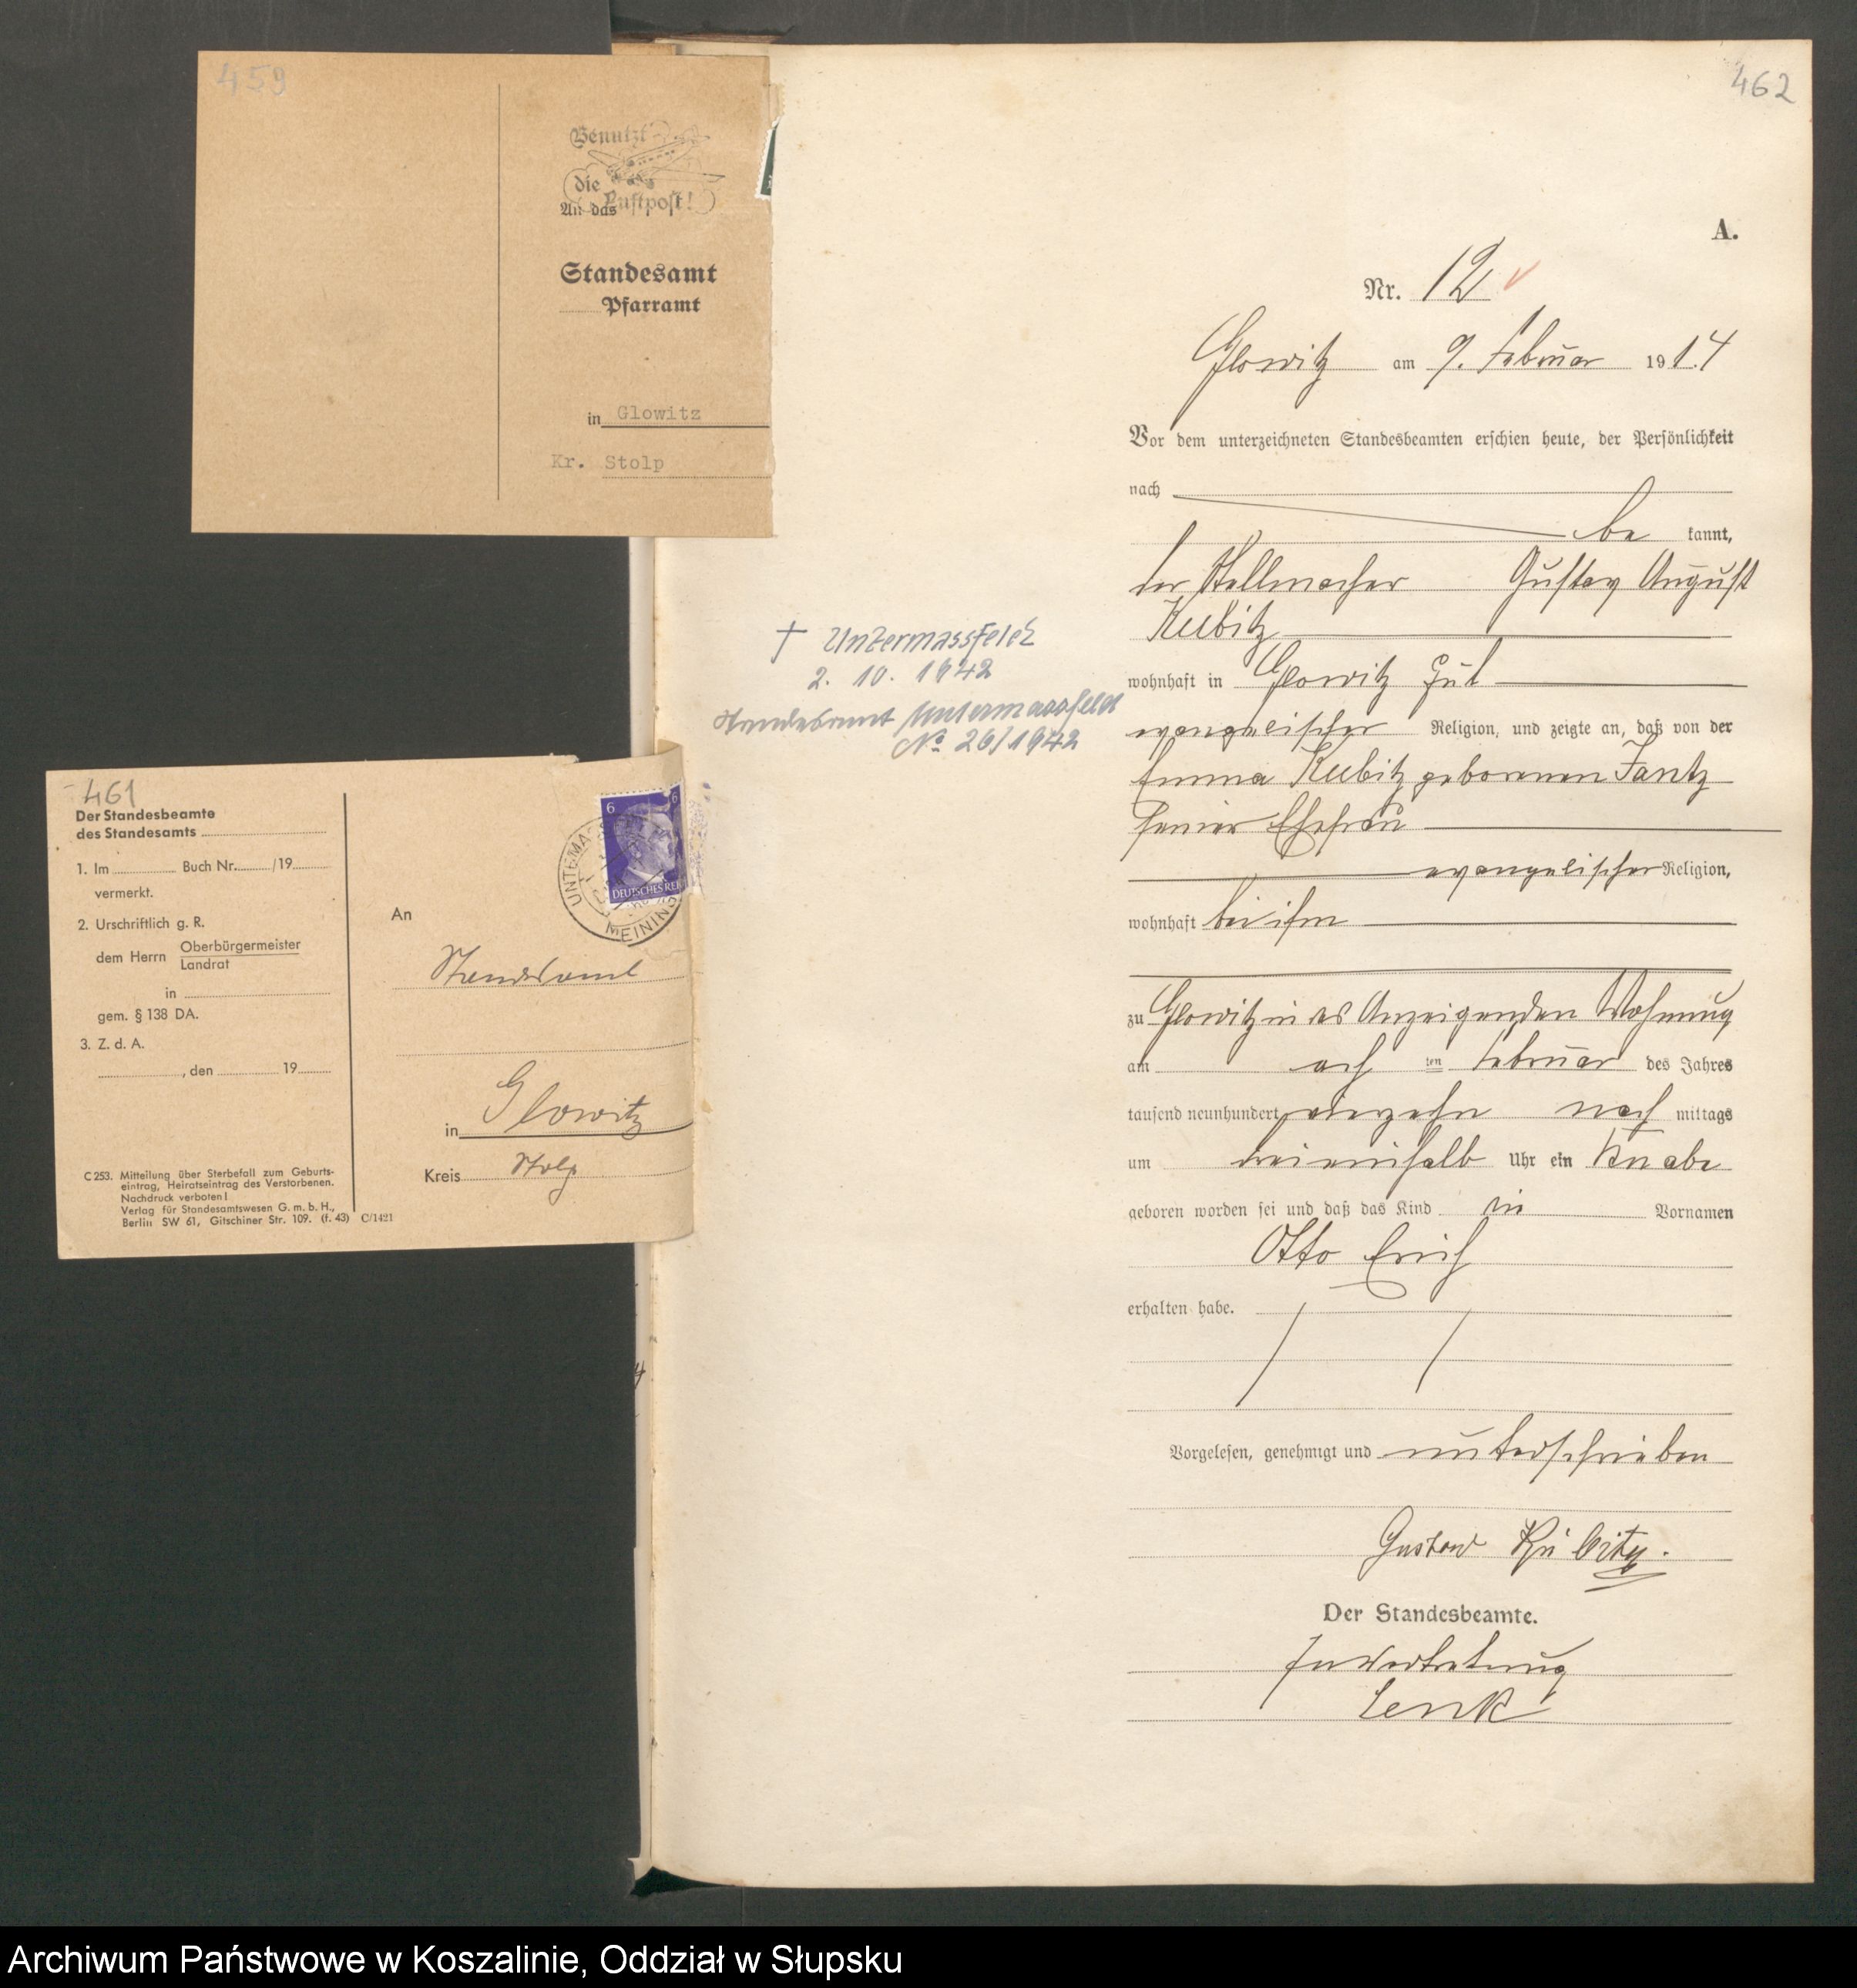 459
Benutzt
die
Luftpost!
An das
Standesamt
Pfarramt
in Glowitz
Kr. Stolp
461
Der Standesbeamte
des Standesamts
1. Im Buch Nr. /19
vermerkt.
2. Urschriftlich g. R.
dem Herrn Oberbürgermeister
Landrat
in
gem. § 138 DA.
3. Z. d. A.
, den 19
C 253. Mitteilung über Sterbefall zum Geburts-
eintrag, Heiratseintrag des Verstorbenen.
Nachdruck verboten!
Verlag für Standesamtswesen G. m. b. H.,
Berlin SW 61, Gitschiner Str. 109. (f. 43) C/1421
6 6
DEUTSCHES REI
UNTERMA
MEININGS
An
Standesamt
in Glowitz
Kreis Stolp
462
A.
Nr. 12
Glowitz am 9. Februar 1914
Vor dem unterzeichneten Standesbeamten erschien heute, der Persönlichkeit
nach
be kannt,
der Stellmacher Gustav August
Kubitz
wohnhaft in Glowitz Gut
evangelischer Religion, und zeigte an, daß von der
Emma Kubitz geborenen Jantz
seiner Ehefrau
evangelischer Religion,
wohnhaft bei ihm
zu Glowitz in des Anzeigenden Wohnung
am ach ten Februar des Jahres
tausend neunhundert vierzehn nach mittags
um dreieinhalb Uhr ein Knabe
geboren worden sei und daß das Kind die Vornamen
Otto Erich
erhalten habe.
Vorgelesen, genehmigt und unterschrieben
Gustav Kubitz.
Der Standesbeamte.
In Vertretung
Lenk
† Untermassfeld
2. 10. 1942
Standesamt Untermassfeld
No 26/1942
Archiwum Państwowe w Koszalinie, Oddział w Słupsku